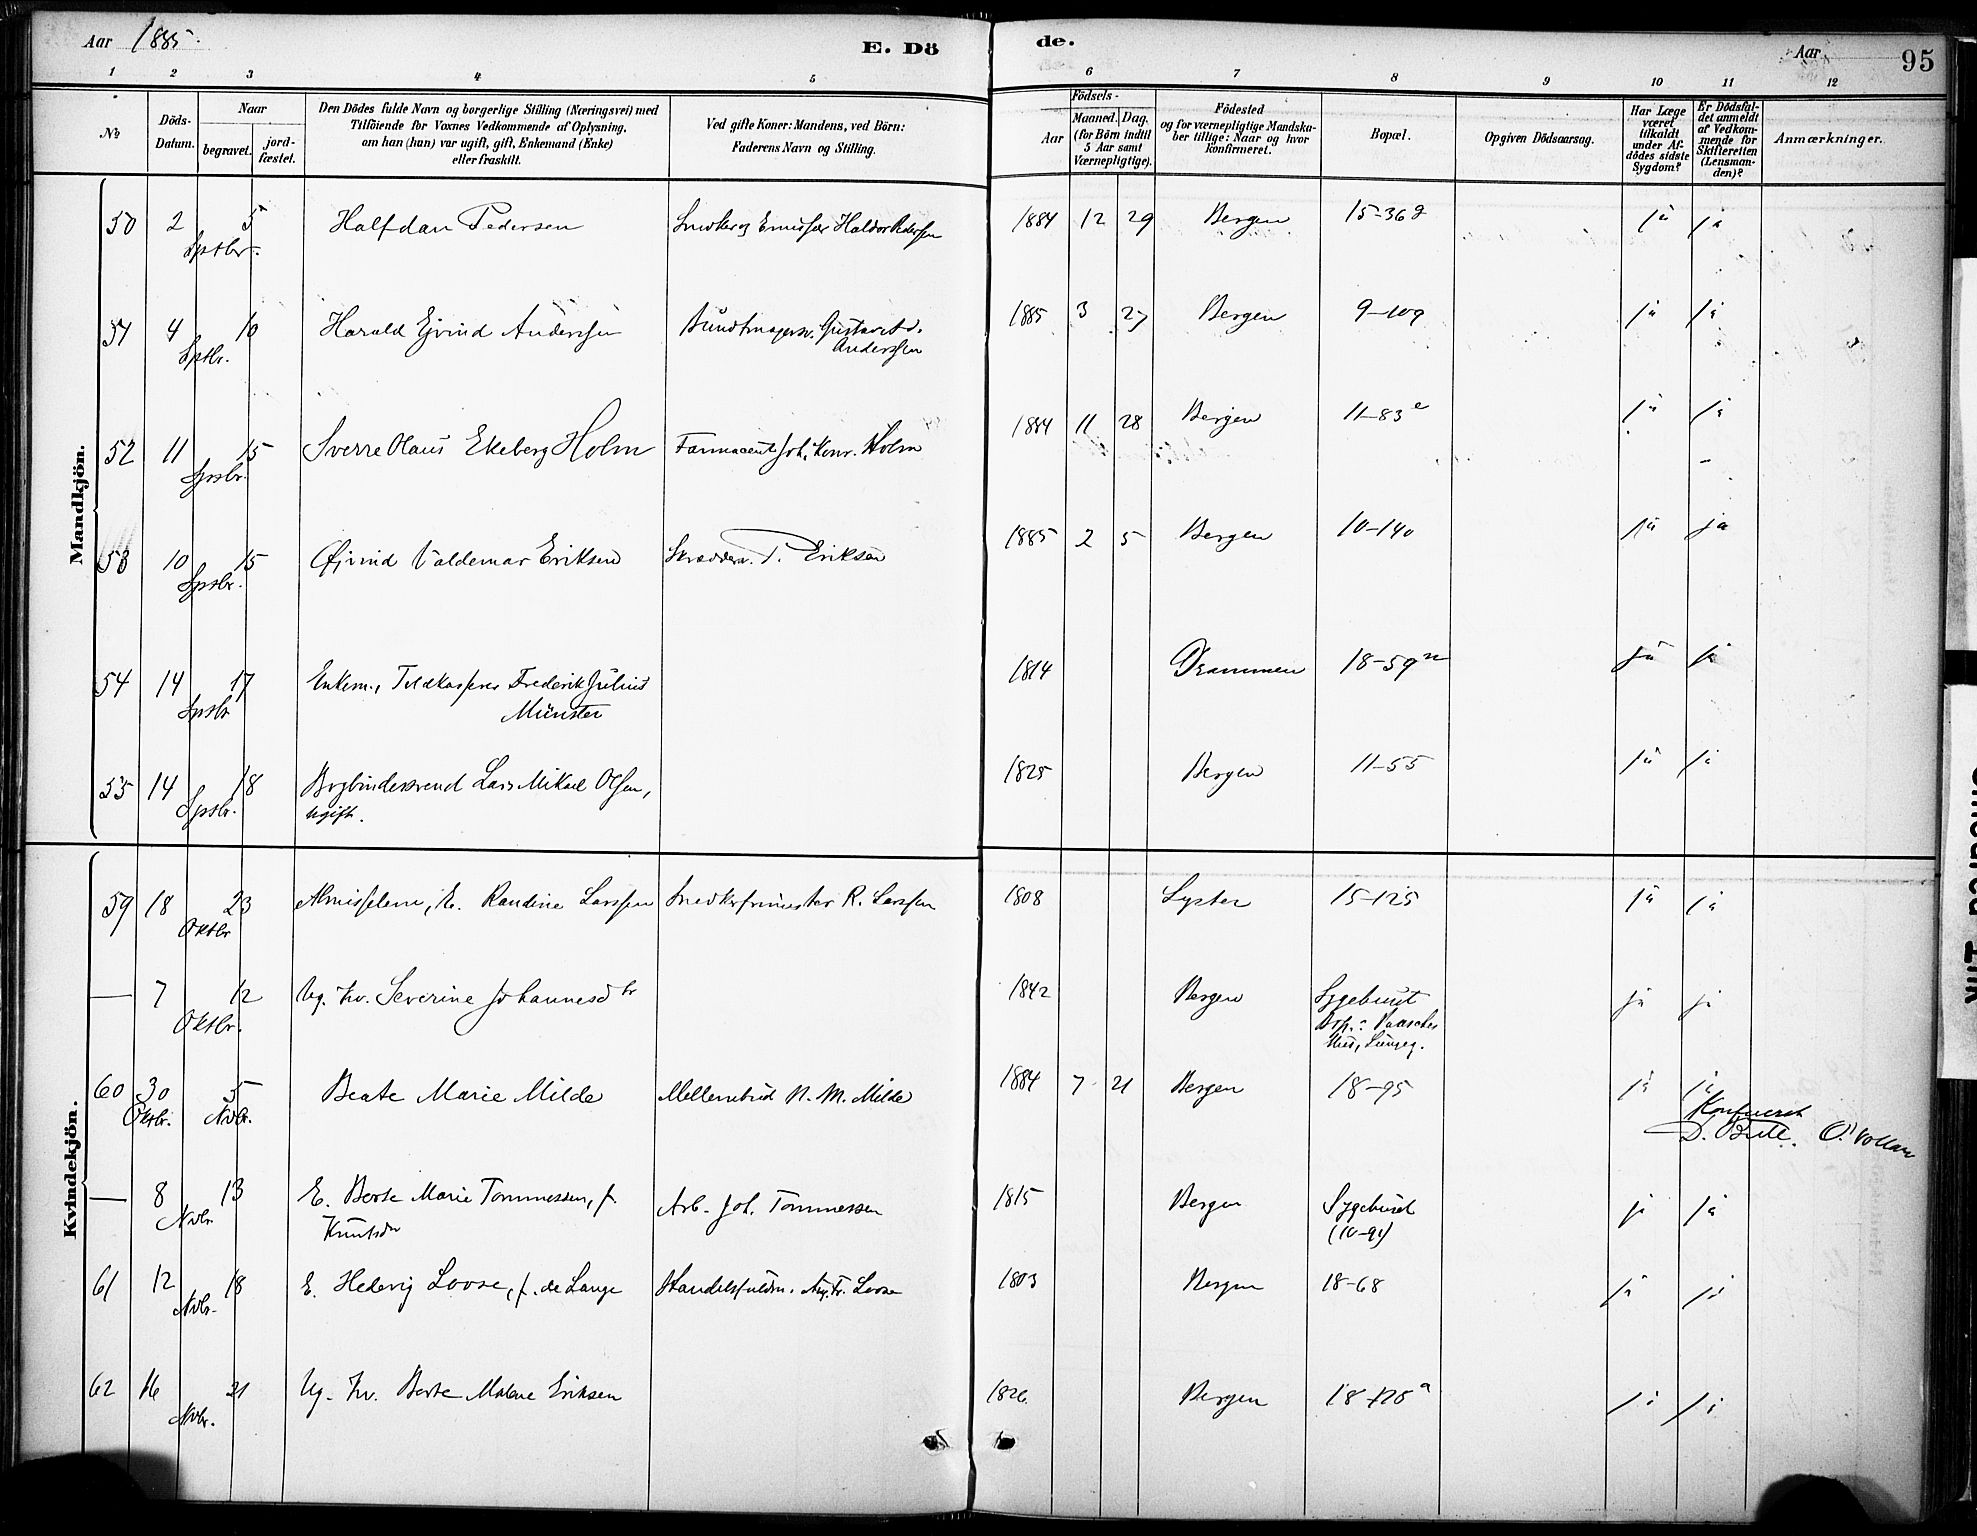 Aar 1885.
E. Dö de.
Aar 95
1 2 3 4 5 6 7 8 9 10 11 12
№
Döds-Datum.
Naar
begravet.
jord-fæstet.
Den Dödes fulde Navn og borgerlige Stilling (Næringsvei) med
Tilföiende for Voxnes Vedkommende af Oplysning,
om han (hun) var ugift, gift, Enkemand (Enke)
eller fraskilt.
Ved gifte Koner: Mandens, ved Börn:
Faderens Navn og Stilling.
Födsels-
Aar
Maaned. Dag.
(for Börn indtil
5 Aar samt
Værnepligtige).
Födested
og for værnepligtige Mandska-
ber tillige: Naar og hvor
konfirmeret.
Bopæl.
Opgiven Dödsaarsag.
Har Læge
været
tilkaldt
under Af-
dödes sidste
Sygdom?
Er Dödsfal-
det anmeldt
af Vedkom-
mende for
Skifteretten
(Lensman-
den)?
Anmærkninger.
Mandkjön.
50 2 5 Halfdan Pedersen Snedker og Emissær Haldor Pedersen 1884 12 29 Bergen 15-36 ja ja
Sptbr.
51 4 10 Harald Ejvind Anderssen Buntmagersv. Gustav A. 1885 3 27 Bergen 9-109 ja ja
Sptbr. Anderssen
52 11 15 Sverre Olaus Ekeberg Holm Farmaceut Joh. Konr. Holm 1884 11 28 Bergen 11-83e ja ja
Sptbr.
53 10 15 Øjvind Valdemar Eriksen Skræddersv. T. Eriksen 1885 2 5 Bergen 10-140 ja ja
Sptbr.
54 14 17 Enkem., Toldkasserer Frederik Julius 1814 Drammen 18-59 ja ja
Sptbr Münster
55 14 18 Bogbindersvend Lars Mikael Olsen, 1825 Bergen 11-55 ja ja
Sptbr. ugift.
Kvindekjön.
59 18 23 Almisselem, E. Randine Larssen Snedkermester R. Larssen 1808 Lyster 15-125 ja ja
Oktbr
— 7 12 Ug. Kv. Severine Johannesdtr 1842 Bergen Sygehuset ja ja
Oktbr. Hus, Lungeg.
60 30 5 Beate Marie Milde N. M. Milde 1884 7 21 Bergen 18-95 ja ja
Oktbr. Nvbr. Konfereret
D. Bull. O. Vollan
— 8 13 E. Berte Marie Tommessen, f. Arb. Joh. Tommessen 1815 Bergen Sygehuset ja ja
Nvbr. Knutsdr (10-91)
61 12 18 E. Hedevig Loose, f. de Lange Handelsfuldm. Aug. Fr. Loose 1803 Bergen 18-68 ja ja
Nvbr.
62 16 21 Ug. Kv. Berte Malene Eriksen 1826 Bergen 18-128a ja ja
Nvbr.